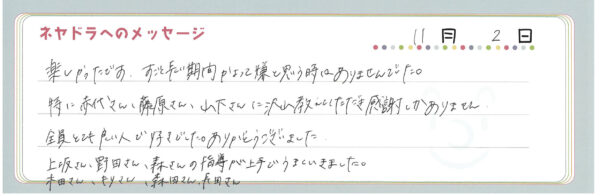 ネヤドラへのメッセージ
11月 2日
楽しかったです。すごく長い期間かよって嫌と思う時はありませんでした。
特に赤代さん、藤原さん、山下さんに沢山教えていただき感謝しかありません。
全員とても良い人で好きでした。ありがとうございました。
上坂さん、野田さん、森さんの指導が上手でうまくいきました。
本田さん、もりさん、森田さん、長田さん